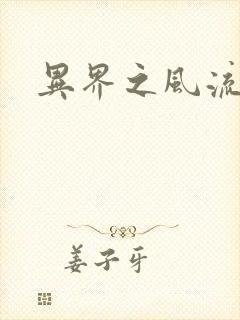 異界之風流
姜子牙